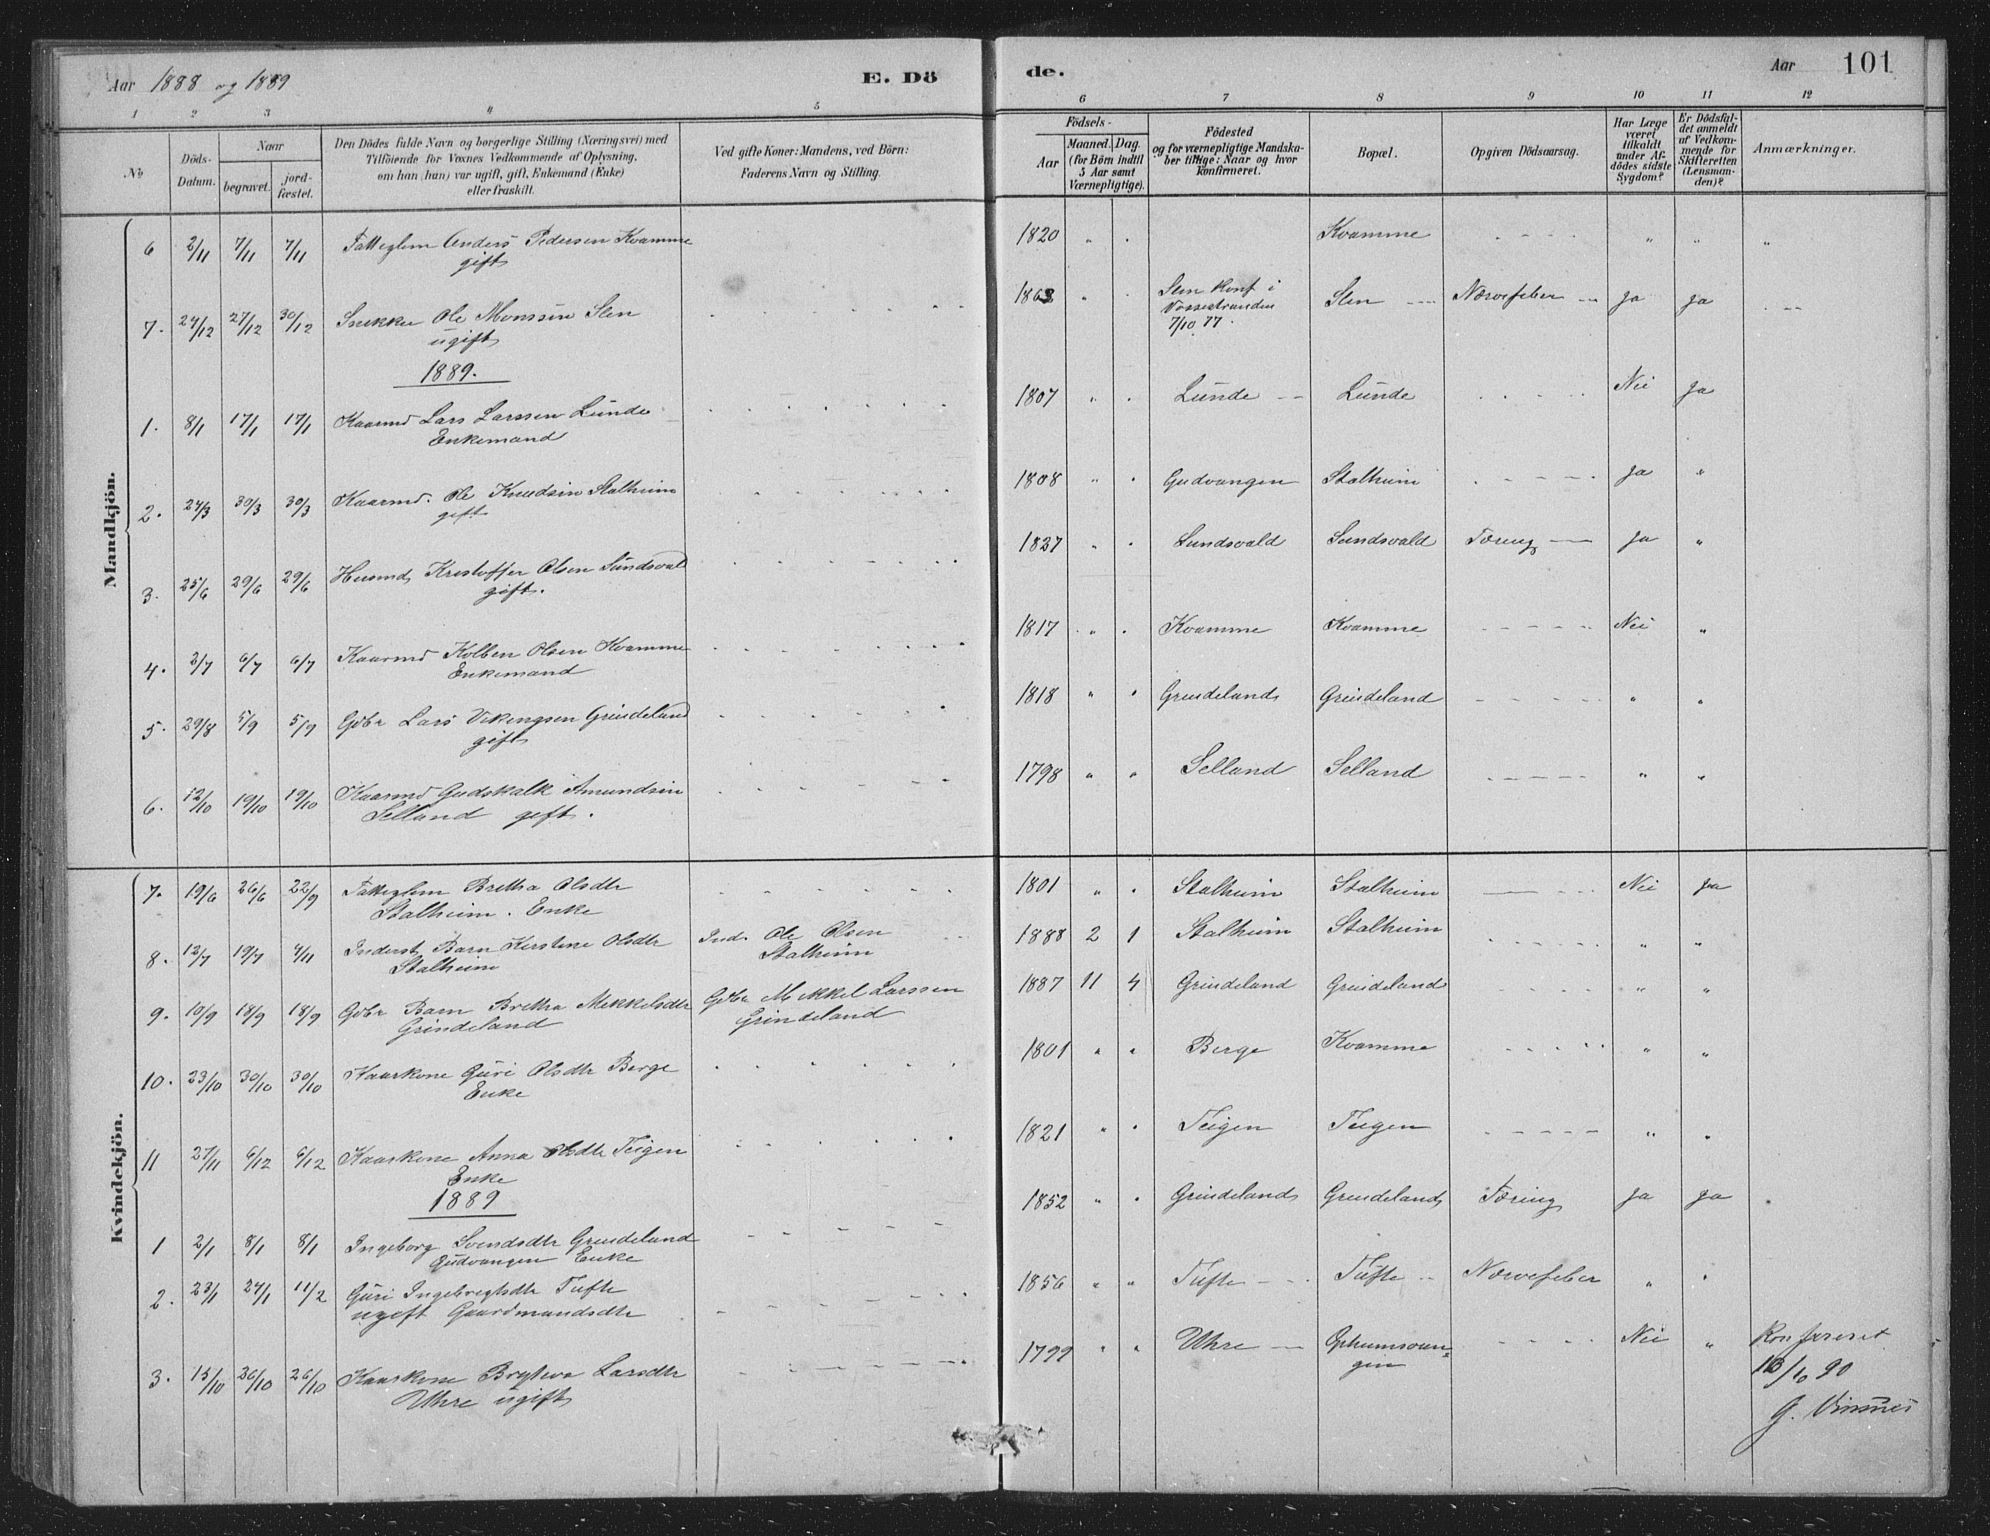 Aar 1888 og 1889
E. Dö
de.
Aar
101
1 2 3 4 5 6 7 8 9 10 11 12
No
Döds-
Datum.
Naar
begravet.
jord-
fæstet.
Den Dödes fulde Navn og borgerlige Stilling (Næringsvei) med
Tilföiende for Voxnes Vedkommende af Oplysning,
om han (hun) var ugift, gift, Enkemand (Enke)
eller fraskilt.
Ved gifte Koner: Mandens, ved Börn:
Faderens Navn og Stilling.
Födsels-
Aar
Maaned. Dag.
(for Börn indtil
5 Aar samt
Værnepligtige).
Födested
og for værnepligtige Mandska-
ber tillige: Naar og hvor
konfirmeret.
Bopæl.
Opgiven Dödsaarsag.
Har Læge
været
tilkaldt
under Af-
dödes sidste
Sygdom?
Er Dödsfal-
det anmeldt
af Vedkom-
mende for
Skifteretten
(Lensman-
den)?
Anmærkninger.
Mandkjön.
6 2/11 7/11 7/11 Fattiglem Anders Pedersen Kvamme 1820 " . Kvamme - - - - " " "
gift
7. 24/12 27/12 30/12 Snekker Ole Monssen Slen 1863 " . Slen konf i Slen Nervefeber ja ja
ugift Vossestranden
7/10 77.
1889.
1. 8/1 17/1 17/1 Kaarmd Lars Larssen Lunde 1807 " . Lunde Lunde Nei Ja
Enkemand
2. 24/3 30/3 30/3 Kaarmd. Ole Knudsen Stalheim 1808 " . Gudvangen Stalheim ja "
gift
3. 25/6 29/6 29/6 Husmd Kristoffer Olsen Sundsval 1827 " . Sundsvald Sundsvald Tæring ja "
gift.
4. 3/7 6/7 6/7 Kaarmd Kolben Olsen Kvamme 1817 " . Kvamme Kvamme Nei "
Enkemand
5. 29/8 5/9 5/9 Gdbr Lars Vikengsen Grindeland 1818 " . Grindeland Grindeland " "
gift
6. 12/10 19/10 19/10 Kaarmd Gudskalk Amundsen 1798 " " Selland Selland " "
Selland gift.
Kvindekjön.
7. 19/6 26/6 22/9 Fattiglem Britha Olsdtr 1801 " . Stalheim Stalheim Nei ja
Stalheim. Enke
8. 12/7 19/7 4/11 Inderst Barn Kerstine Olsdtr Ind. Ole Olsen 1888 2 1 Stalheim Stalheim " "
Stalheim Stalheim
9. 10/9 18/9 18/9 Gdbr Barn Britha Mikkelsdtr Gdbr Mikkel Larssen 1887 11 4 Grindeland Grindeland " "
Grindeland Grindeland
10. 23/10 30/10 30/10 Kaarkone Guri Olsdtr Berge 1801 " " Berge Kvamme " "
Enke
11 27/11 6/12 6/12 Kaarkone Anna Olsdtr Teigen 1821 " . Teigen Teigen " "
Enke
1889
1 2/1 8/1 8/1 Ingeborg Svendsdtr Grindeland 1852 " . Grindeland Grindeland Tæring ja ja
Gudvangen Enke
2. 23/1 27/1 11/2 Guri Ingebregtsdtr Tufte 1856 " " Tufte Tufte Nervefeber " "
ugift Gaardmandsdtr
3. 15/10 26/10 26/10 Kaarkone Bryteva Larsdtr 1799 " " Uhre Nei "
Uhre ugift
Konfereret
G. Vinsnes